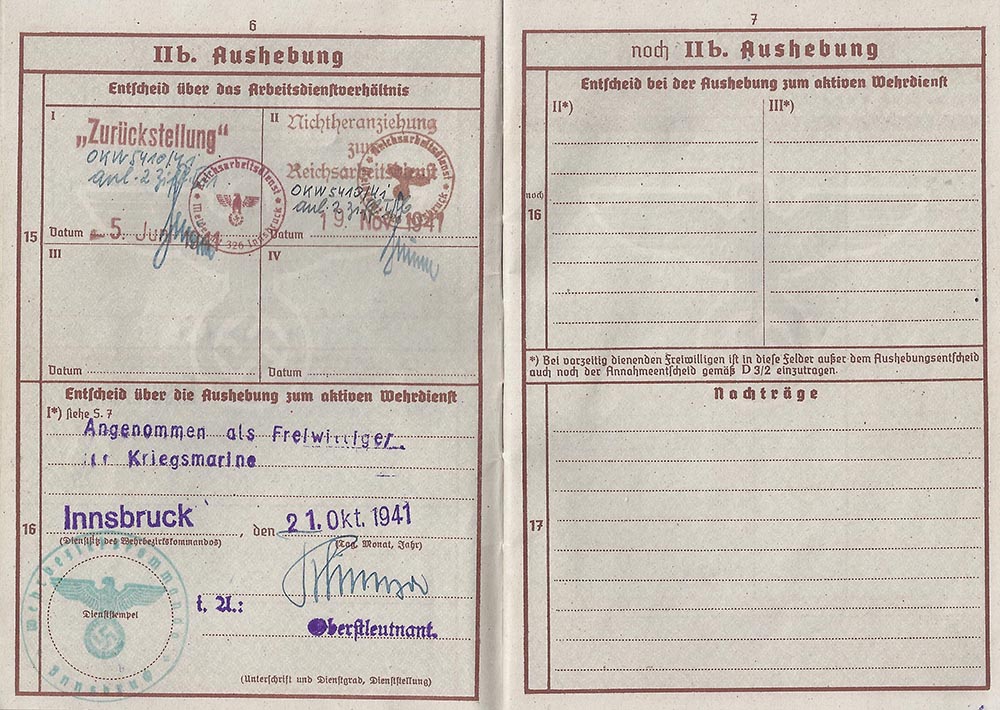 6
IIb. Aushebung
Entscheid über das Arbeitsdienstverhältnis
15
I
„Zurückstellung“
OKW 5410/41
anl. 2
Datum 5. Jun 1941
Reichsarbeitsdienst
326 Innsbruck
II
Nichtheranziehung
zum
Reichsarbeitsdienst
OKW 5410/41
anl. 2
Datum 19. Nov. 1941
Reichsarbeitsdienst
III
Datum
IV
Datum
16
Entscheid über die Aushebung zum aktiven Wehrdienst
I*) siehe S. 7
Angenommen als Freiwilliger
Kriegsmarine
Innsbruck, den 21. Okt. 1941
(Dienstsitz des Wehrbezirkskommandos) (Tag, Monat, Jahr)
Wehrbezirkskommando
Innsbruck
Dienststempel
i. A.:
Oberstleutnant.
(Unterschrift und Dienstgrad, Dienststellung)
7
noch IIb. Aushebung
Entscheid bei der Aushebung zum aktiven Wehrdienst
noch
16
II*)
III*)
*) Bei vorzeitig dienenden Freiwilligen ist in diese Felder außer dem Aushebungsentscheid
auch noch der Annahmeentscheid gemäß D 3/2 einzutragen.
Nachträge
17